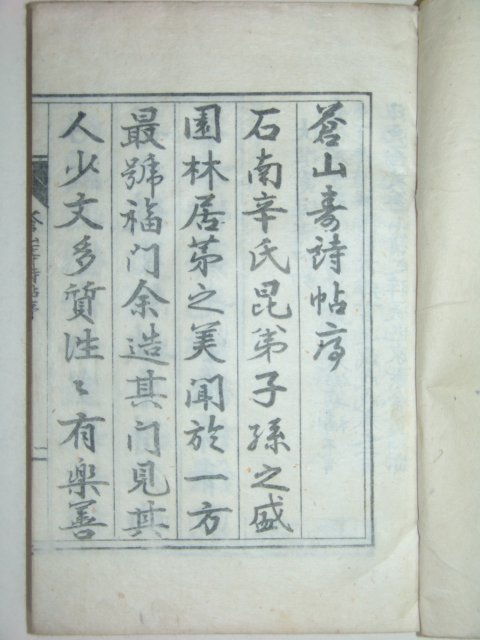 蒼山壽詩帖序
石南辛氏昆弟子孫之盛
園林居苐之美聞於一方
最號福門余造其門見其
人少文多質往〻有樂善